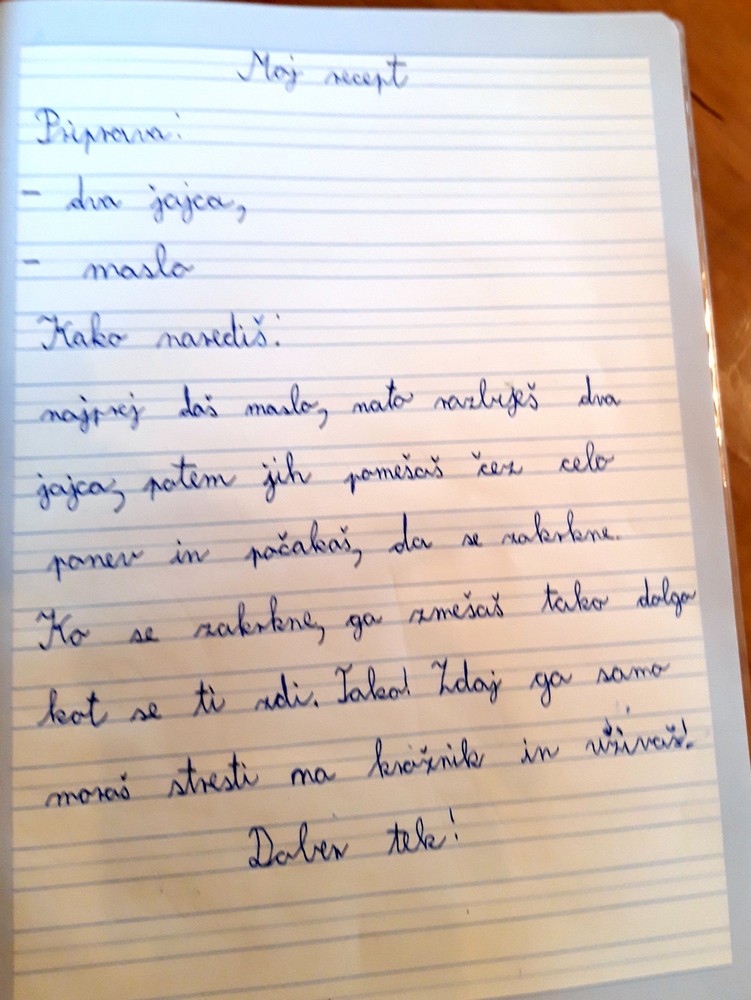 Moj recept
Priprava:
- dva jajca,
- maslo
Kako narediš:
najprej daš maslo, nato razbiješ dva
jajca, potem jih pomešaš čez celo
ponev in počakaš, da se zakrkne.
Ko se zakrkne, ga zmešaš tako dolgo
kot se ti zdi. Tako! Zdaj ga samo
moraš stresti na krožnik in uživaš!
Dober tek!